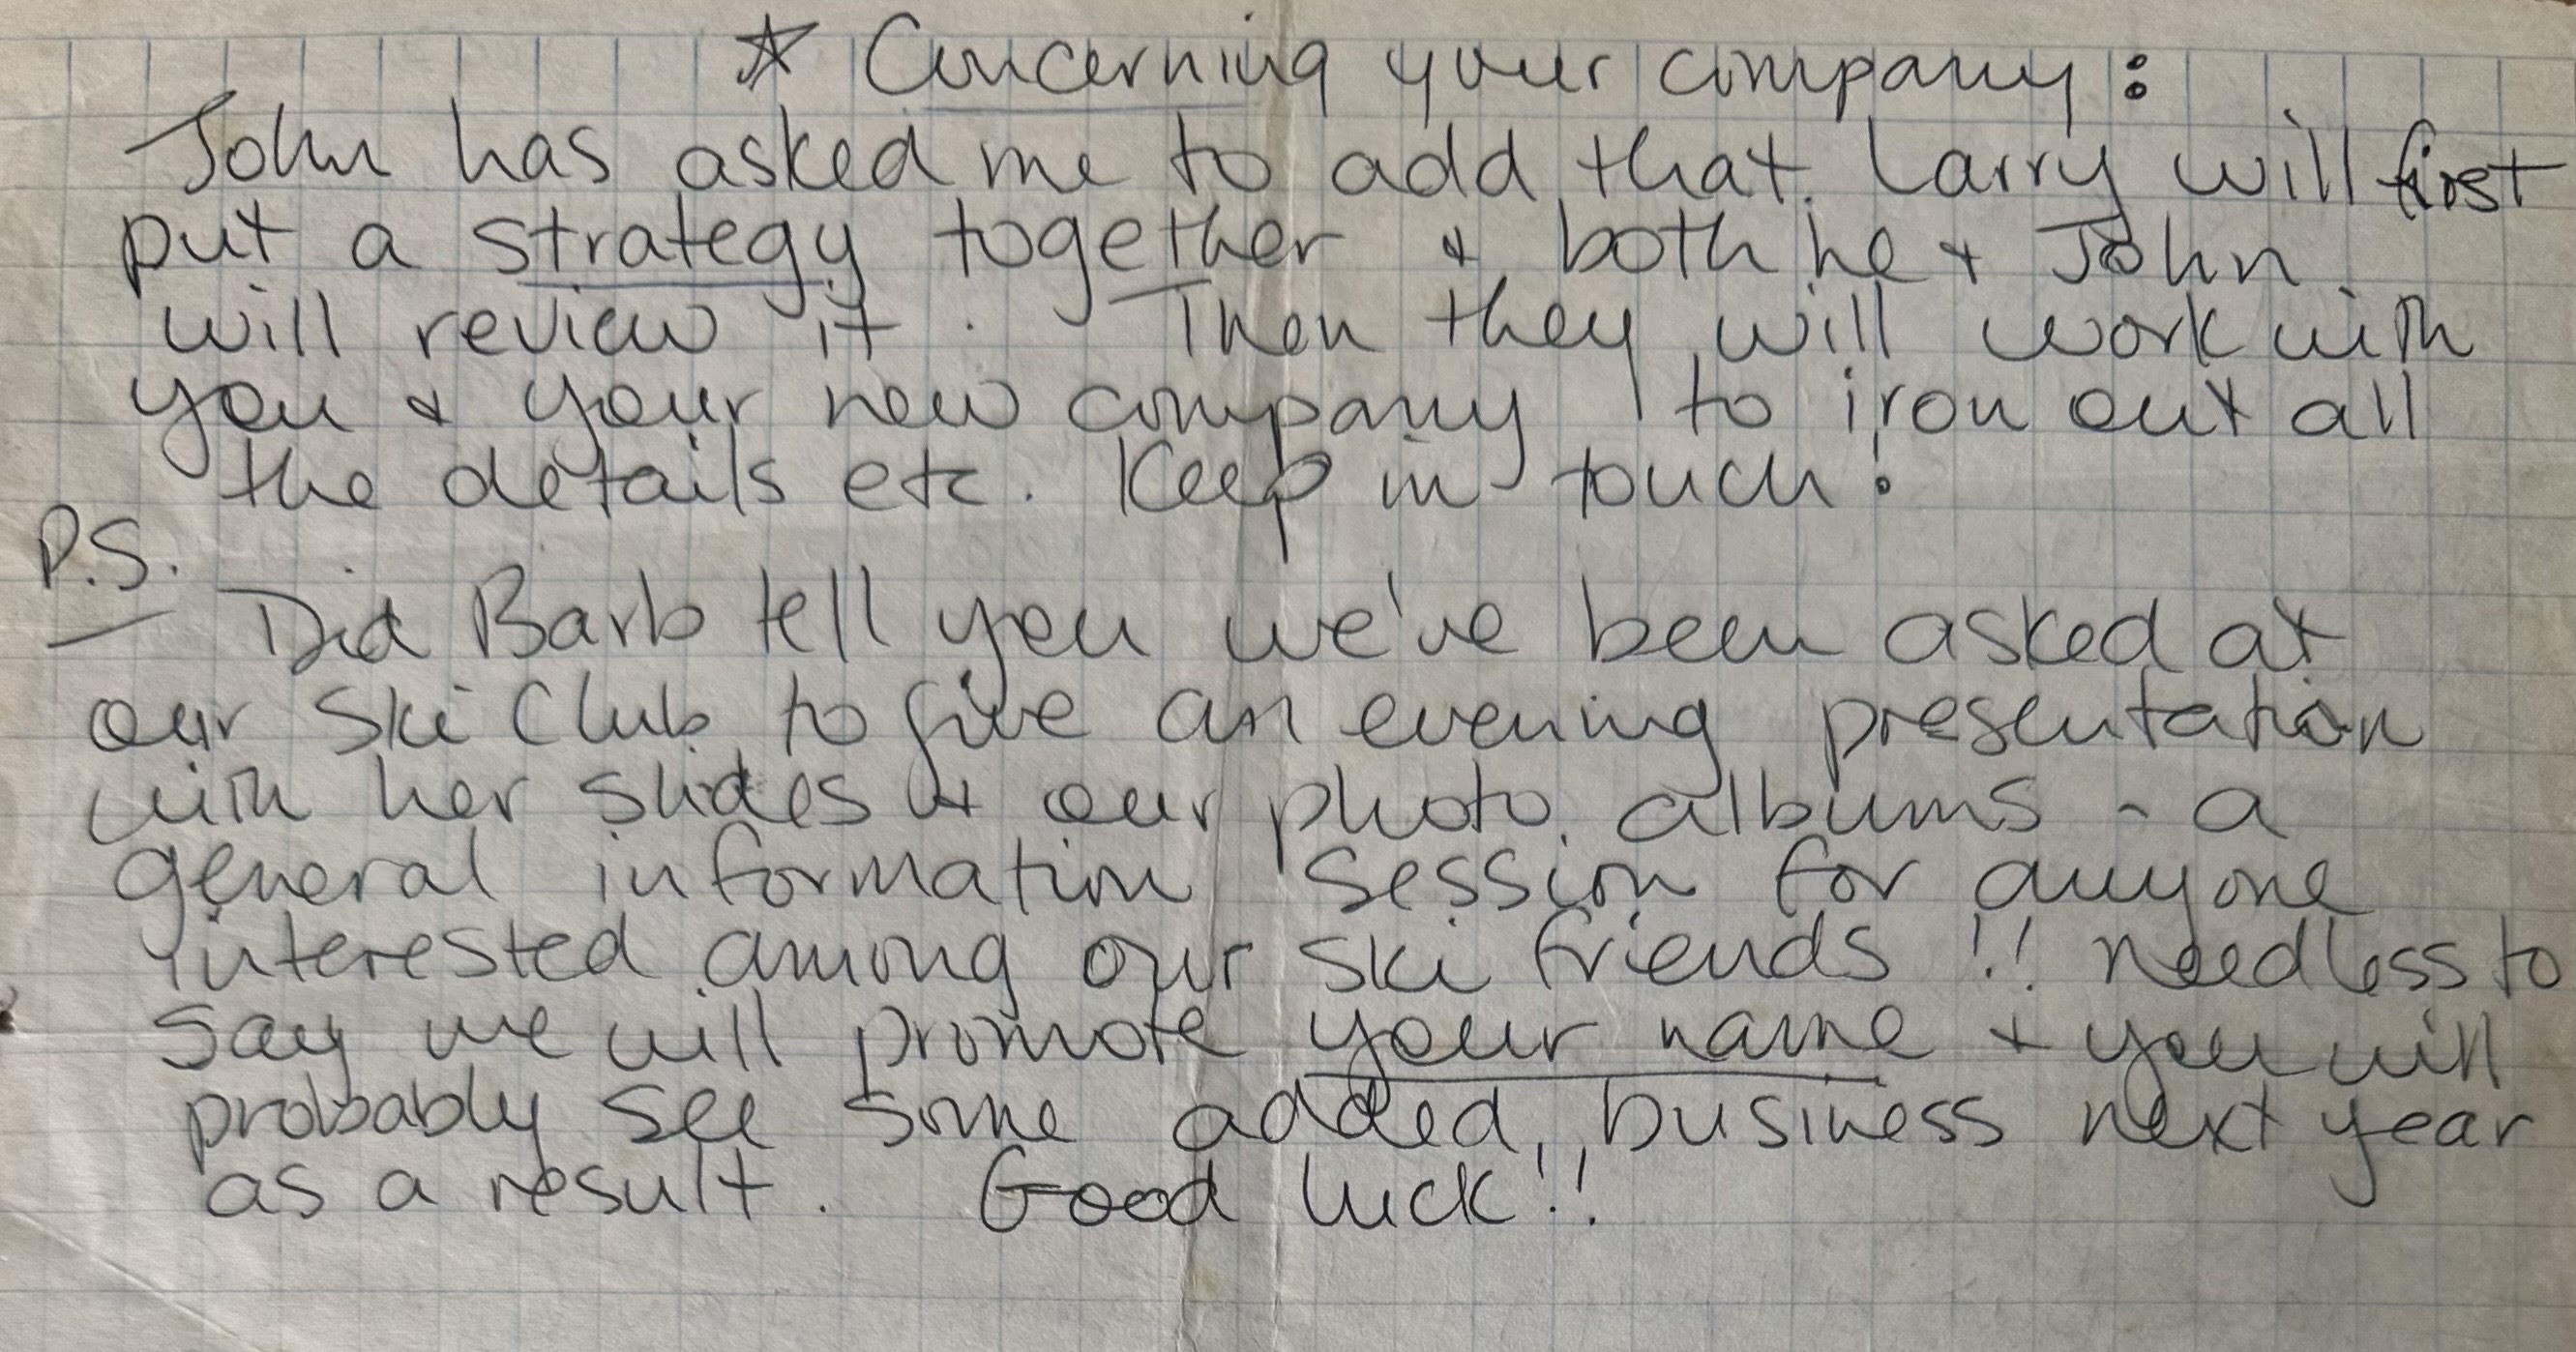 ☆ Concerning your company:
John has asked me to add that Larry will first
put a strategy together & both he & John
will review it. Then they will work with
you & your new company to iron out all
the details etc. Keep in touch!
P.S.
Did Barb tell you we've been asked at
our Ski Club to give an evening presentation
with her slides & our photo albums - a
general information session for anyone
interested among our ski friends!! needless to
say we will promote your name & you will
probably see some added business next year
as a result. Good luck!!